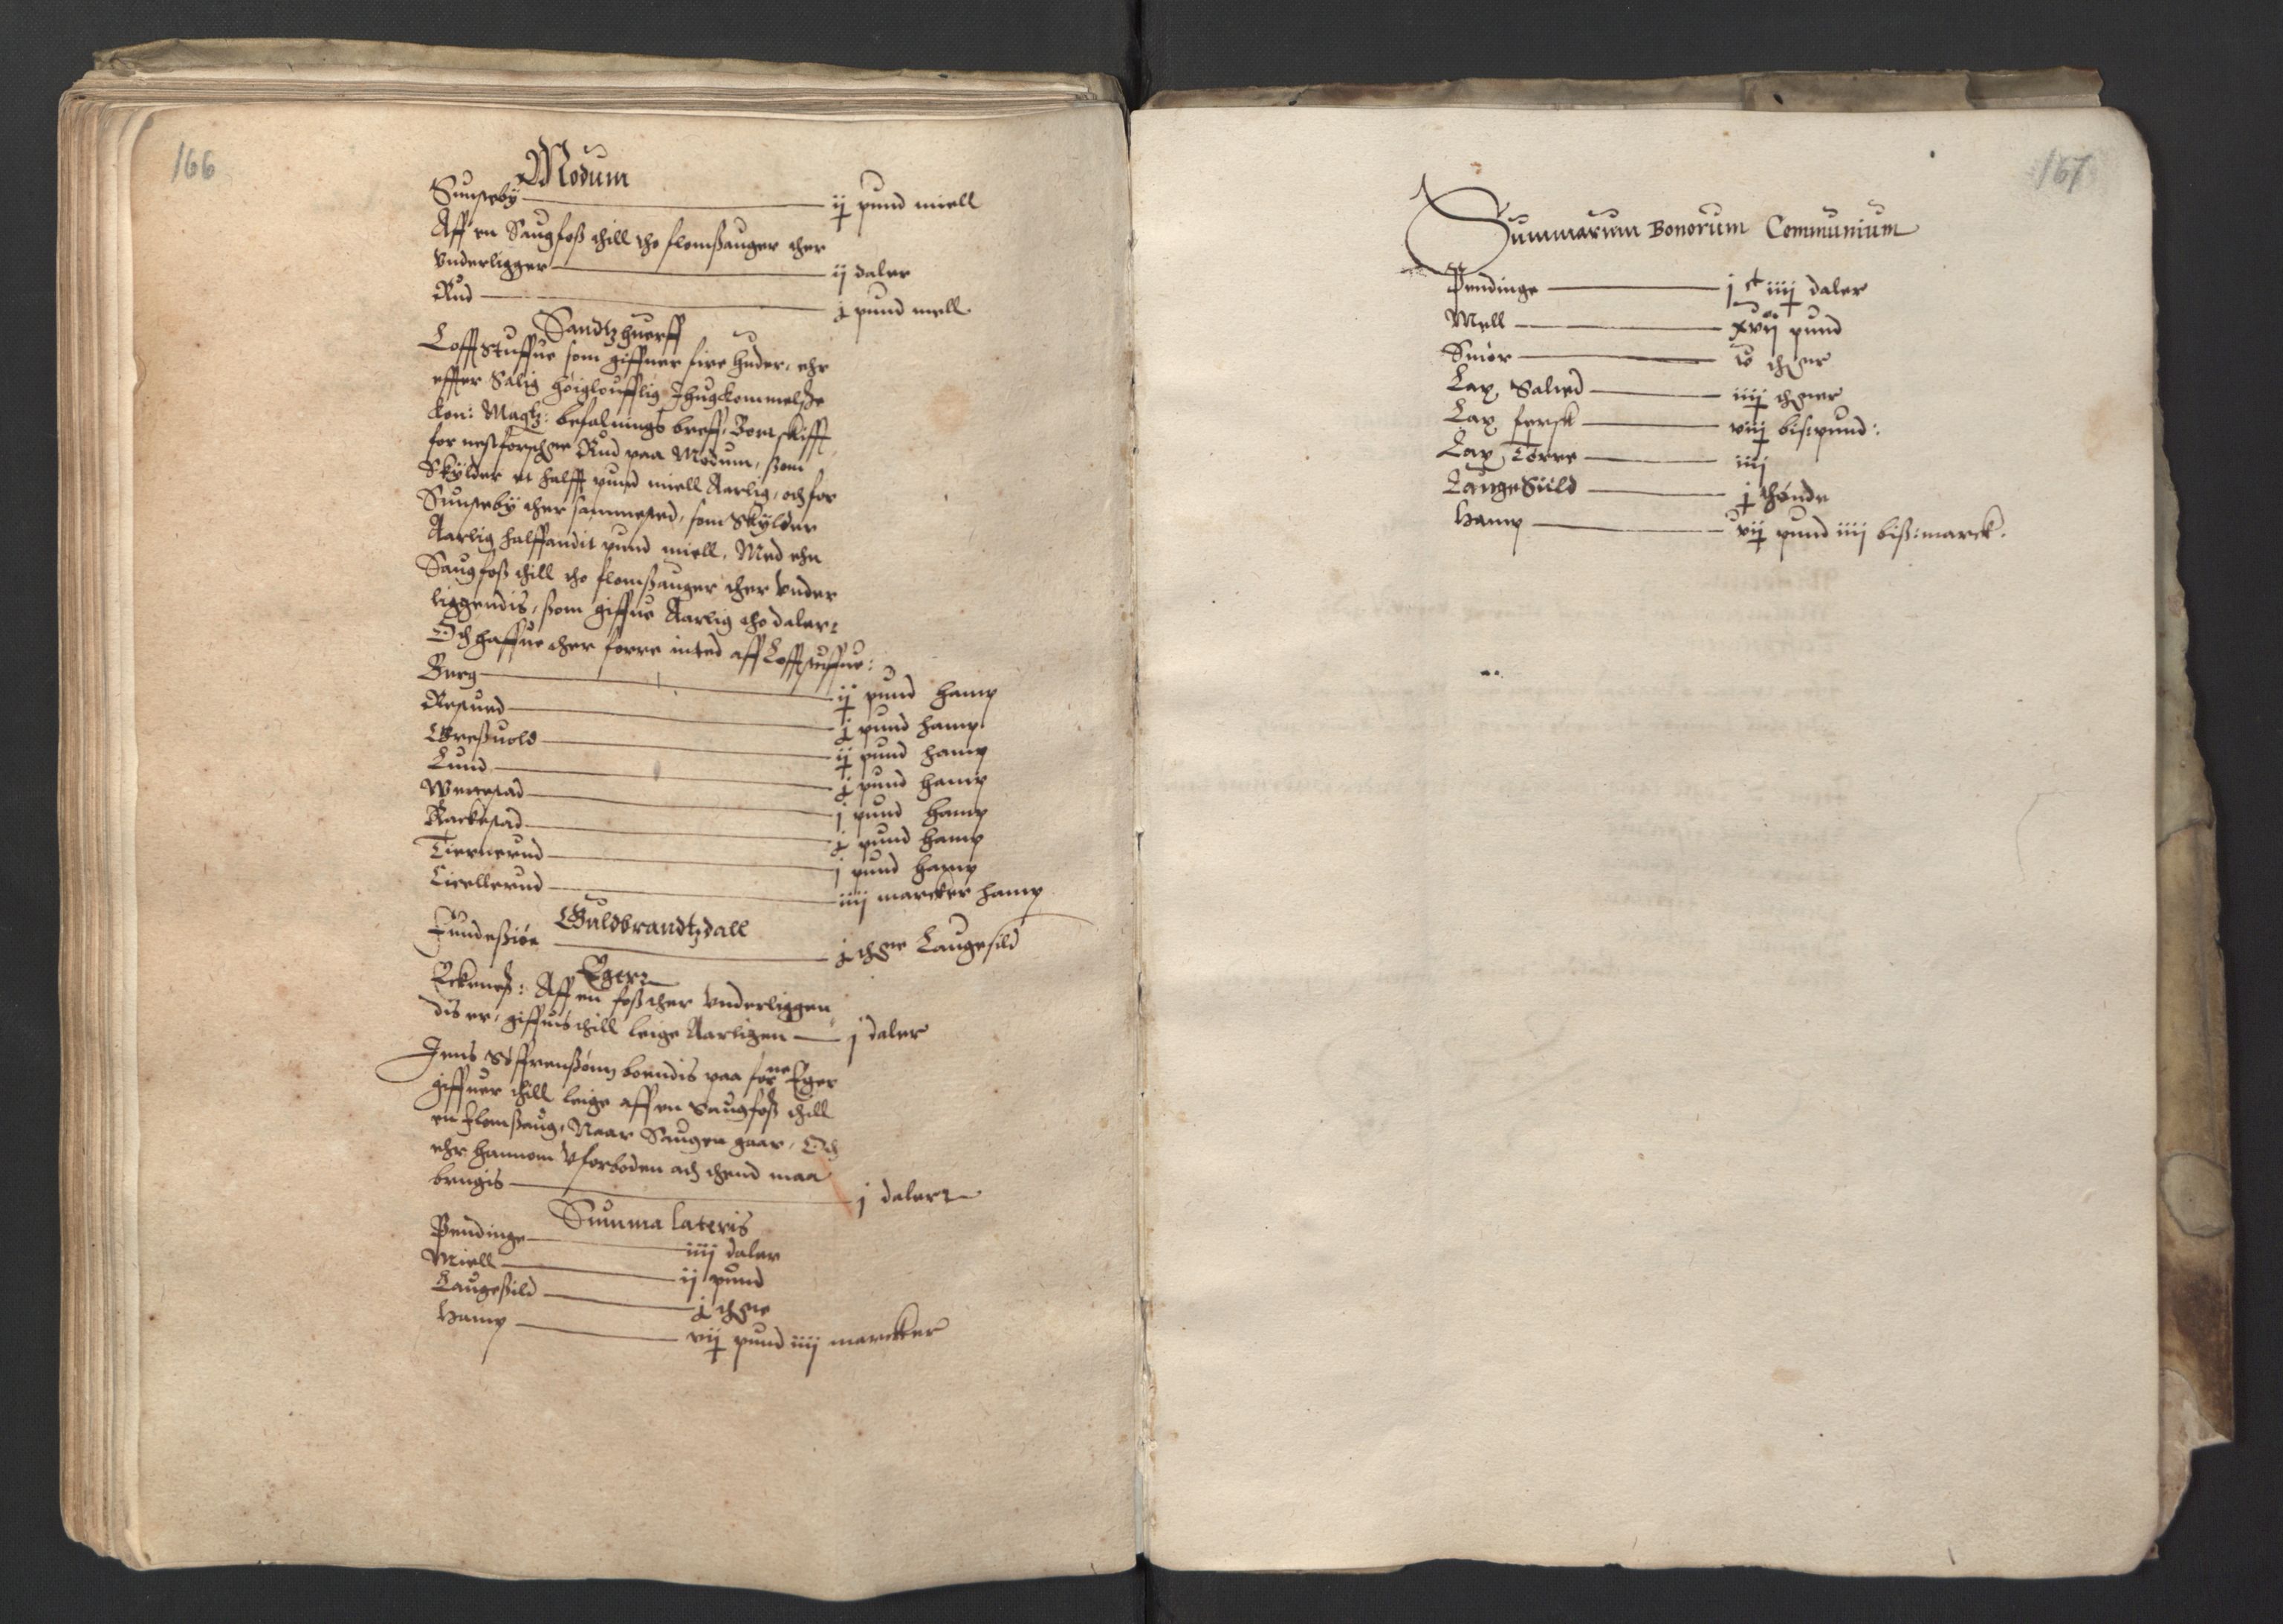 166
Modum
Sunseby ij pund miell
Aff en Saugfoß thill tho flomßauger ther
vnderligger ij daler
Rud j pund mell
Sandtzhuerff
Lofftstuffue som giffuer fire huder, ehr
effter Salig høigloufflig Ihugkommelsße
Kon: Magtz: befalnings breff, Bortskifft
for nest forschne Rud paa Modum, ßom
Skylder et halfft pund miell Aarlig, och for
Sunseby ther sammested, som Skylder
Aarlig halffandit pund miell, Med ehn
Saugfoß thill tho flomßauger ther vnder
liggendis, ßom giffue Aarlig tho daler
Och haffue ther forre inted aff Lofftstuffue:
Berg ij pund hamp
Resued j pund hamp
Greßuold ij pund hamp
Lund j pund hamp
Werrestad j pund hamp
Rackestad j pund hamp
Tiernerud j pund hamp
Licellerud iiij marcker hamp
Guldbrandtzdall
Fundeßiøe j thne Laugesild
Eger
Eckeneß: Aff en foß ther vnderliggen
dis er, giffuis thill leige Aarligen j daler
Jens Søffrenßønn boendis paa forne Eger
giffuer thill leige aff en Saugfoß thill
en flomßaug, Naar Saugen gaar, Och
ehr hannom vforboden ath thend maa
brugis j daler
Summa lateris
Pendinge iiij daler
Miell ij pund
Laugeßild j thne
Hamp vij pund iiij marcker
167
Summarum Bonorum Communium
Pendinge j c iiij daler
Mell xvij pund
Smør v thner
Lax Salted iiij thner
Lax fersk viij bispund:
Lax Tørre iiij
LaugeSield j thønde
Hamp vij pund iiij biß:marck.